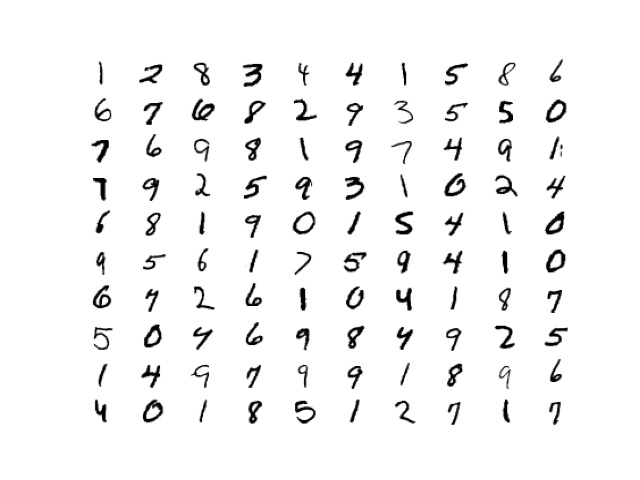 1 2 8 3 4 4 1 5 8 6
6 7 6 8 2 9 3 5 5 0
7 6 9 8 1 9 7 4 9 1
7 9 2 5 9 3 1 0 2 4
6 8 1 9 0 1 5 4 1 0
9 5 6 1 7 5 9 4 1 0
6 7 2 6 1 0 4 1 8 7
5 0 4 6 9 8 4 9 2 5
1 4 9 7 9 9 1 8 9 6
4 0 1 8 5 1 2 7 1 7